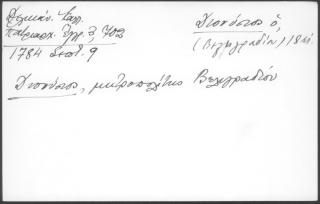 Δελικάν. Καλ.
Πατριαρχ. Ἔγγρ. 3, 702
1784 Σεπτ. 9
Διονύσιος ὁ,
(Βελιγραδίου) 18 αἰ.
Διονύσιος, μητροπολίτης Βελιγραδίου